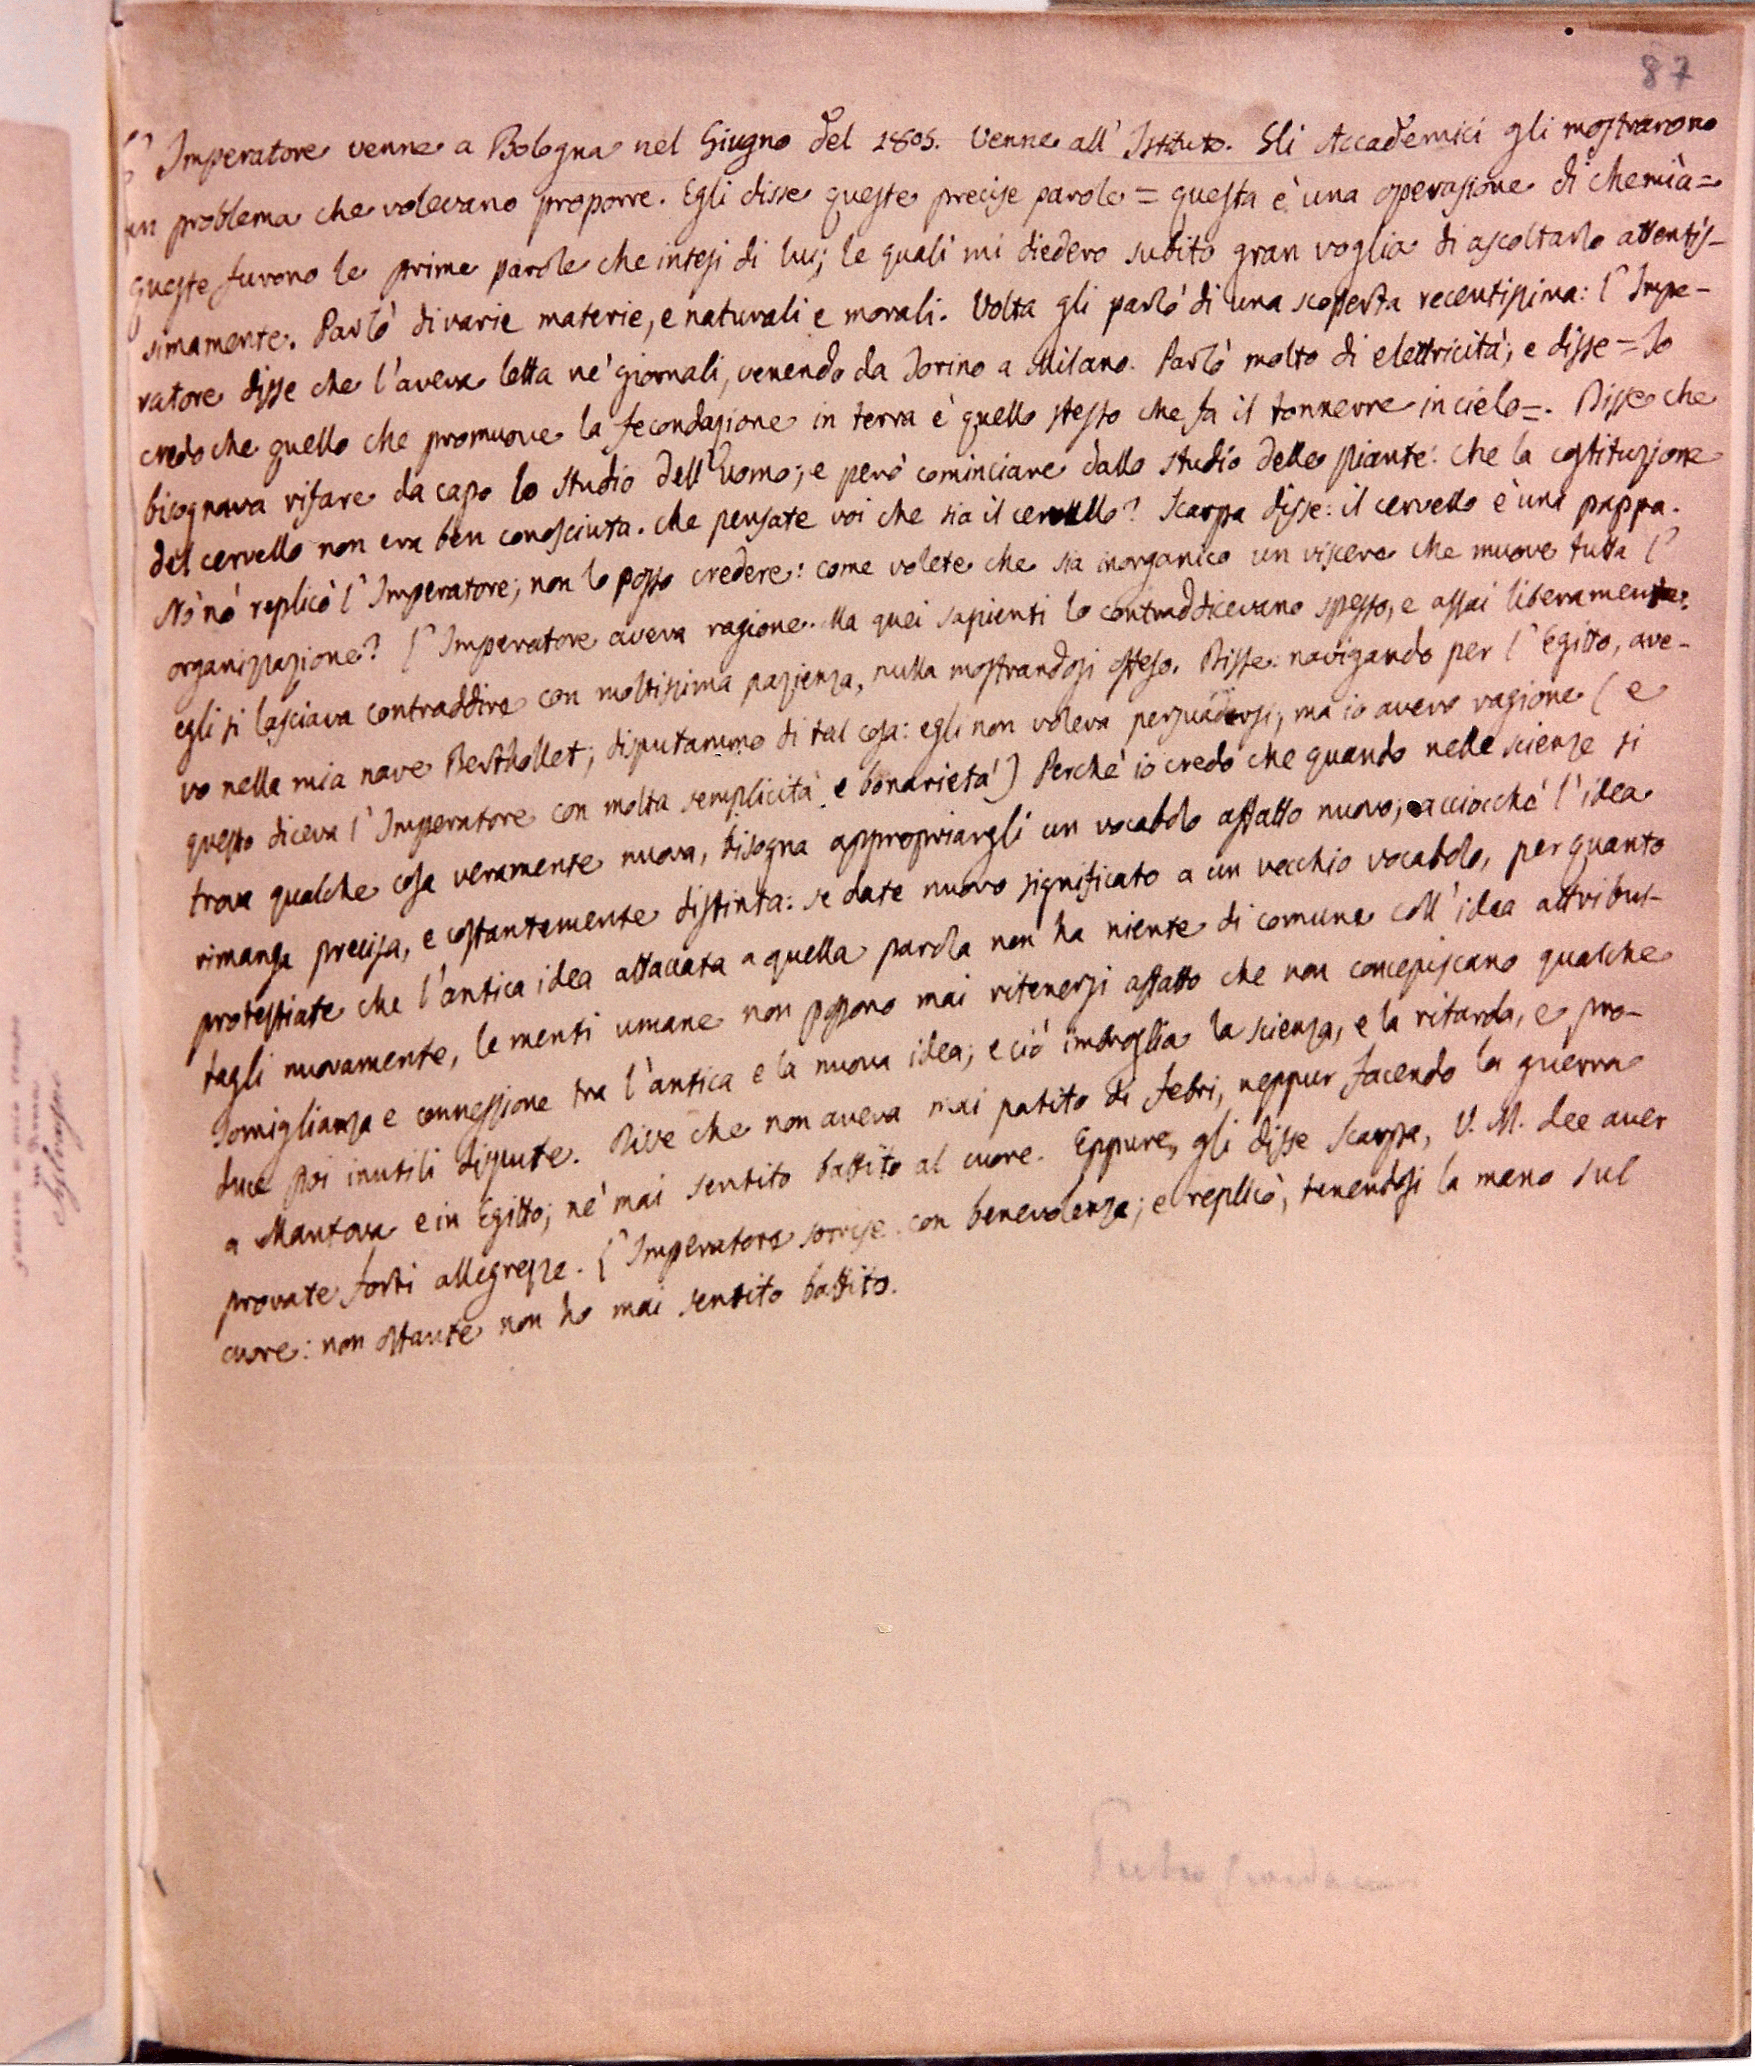 87
L'Imperatore venne a Bologna nel Giugno del 1805. Venne all'Istituto. Gli Accademici gli mostrarono
un problema che volevano proporre. Egli disse queste precise parole = questa è una operazione di chemìa =
queste furono le prime parole che intesi di lui; le quali mi diedero subito gran voglia di ascoltarlo attentis-
simamente. Parlò di varie materie, e naturali e morali. Volta gli parlò di una scoperta recentissima: l'Impe-
ratore disse che l'aveva letta ne' giornali, venendo da Torino a Milano. Parlò molto di elettricità; e disse = Io
credo che quello che promuove la fecondazione in terra è quello stesso che fa il tonnerre in cielo =. Disse che
bisognava rifare da capo lo studio dell'Uomo; e però cominciare dallo studio delle piante: che la costituzione
del cervello non era ben conosciuta. che pensate voi che sia il cervello? Scarpa disse: il cervello è una pappa.
Nò nò replicò l'Imperatore; non lo posso credere: come volete che sia inorganico un viscere che muove tutta l'
organizzazione? l'Imperatore aveva ragione. Ma quei sapienti lo contraddicevano spesso, e assai liberamente:
egli si lasciava contraddire con moltissima pazienza, nulla mostrandosi offeso. Disse: navigando per l'Egitto, ave-
vo nella mia nave Berthollet; disputammo di tal cosa: egli non voleva persuadersi; ma io avevo ragione (e
questo diceva l'Imperatore con molta semplicità e bonarietà) Perchè io credo che quando nelle scienze si
trova qualche cosa veramente nuova, bisogna appropriargli un vocabolo affatto nuovo; acciocchè l'idea
rimanga precisa, e costantemente distinta: se date nuovo significato a un vecchio vocabolo, per quanto
protestiate che l'antica idea attaccata a quella parola non ha niente di comune coll'idea attribui-
tagli nuovamente, le menti umane non possono mai ritenersi affatto che non concepiscano qualche
somiglianza e connessione tra l'antica e la nuova idea; e ciò imbroglia la scienza, e la ritarda, e pro-
duce poi inutili dispute. Disse che non aveva mai patito di febri, neppur facendo la guerra
a Mantova e in Egitto; nè mai sentito battito al cuore. Eppure, gli disse Scarpa, V. M. dee aver
provate forti allegrezze. l'Imperatore sorrise con benevolenza; e replicò, tenendosi la mano sul
cuore: non ostante non ho mai sentito battito.